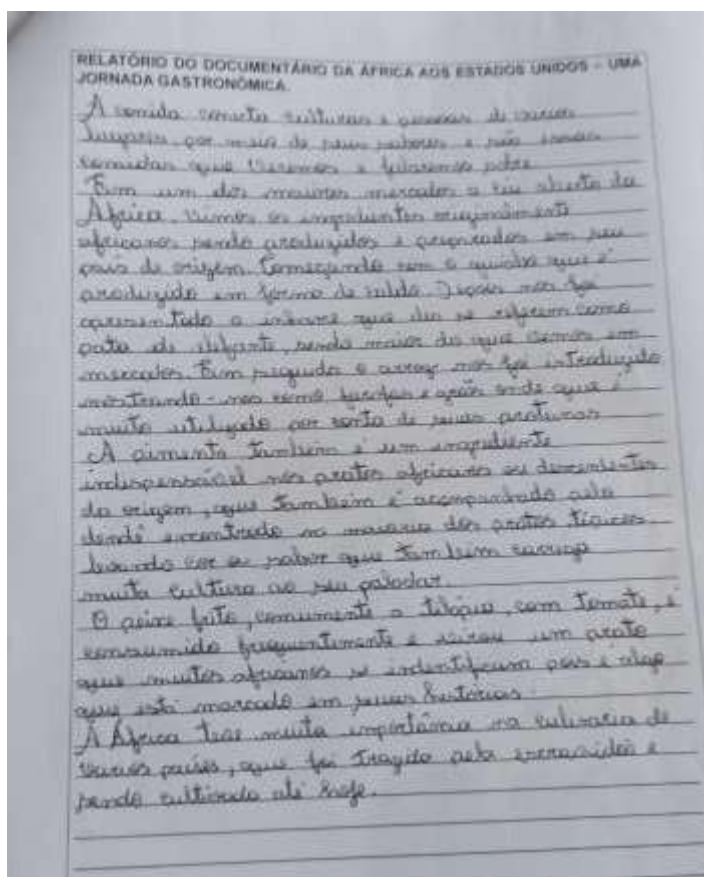 RELATÓRIO DO DOCUMENTÁRIO DA ÁFRICA AOS ESTADOS UNIDOS – UMA
JORNADA GASTRONÔMICA.
A comida conecta culturas e pessoas de vários
lugares por meio de seus sabores e são essas
comidas que veremos e falaremos sobre.
Em um dos maiores mercados a céu aberto da
África, vimos os ingredientes originalmente
africanos sendo produzidos e preparados em seu
país de origem. Começando com o quiabo que é
produzido em forma de caldo. Depois nos foi
apresentado o inhame que eles se referem como
pata de elefante, sendo maior do que vemos em
mercados. Em seguida o arroz nos foi introduzido
mostrando-nos como e grãos onde que é
muito utilizado por conta de suas
A pimenta também é um ingrediente
indispensável nos pratos africanos ou descendentes
da origem, que também é acompanhado pelo
dendê encontrado na maioria dos pratos típicos
levando cor e sabor que também carrega
muita cultura ao seu paladar.
O peixe frito, comumente a tilápia, com tomate, é
consumido frequentemente e virou um prato
que muitos africanos se indentificam pois é algo
que está marcado em suas histórias.
A África teve muita importância na culinária de
vários países, que foi trazido pela escravidão e
sendo cultivado até hoje.